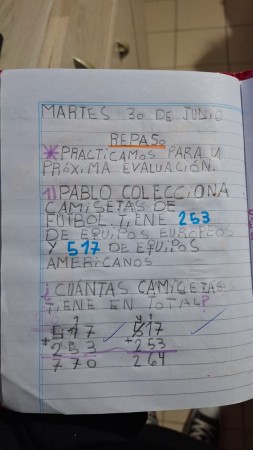 MARTES 30 DE JULIO
REPASO
*PRACTICAMOS PARA LA
PRÓXIMA EVALUACIÓN.
1) PABLO COLECCIONA
CAMISETAS DE
FÚTBOL TIENE 253
DE EQUIPOS EUROPEOS
Y 517 DE EQUIPOS
AMERICANOS
¿CUÁNTAS CAMISETAS
TIENE EN TOTAL?
517 517
+253 +253
770 264